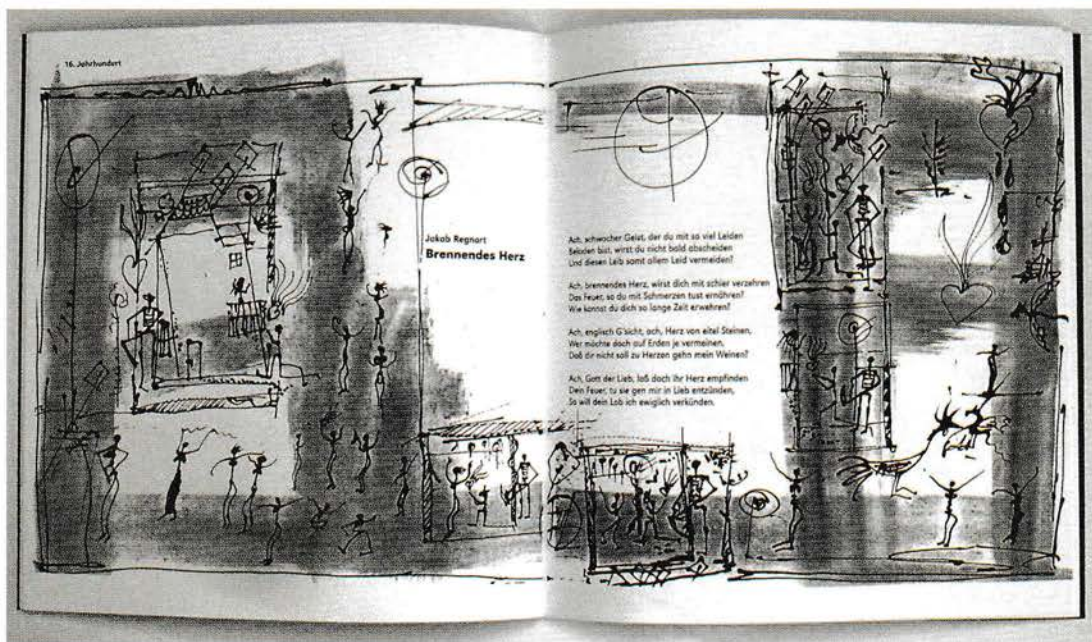 16. Jahrhundert
Jakob Regnart
Brennendes Herz
Ach, schwacher Geist, der du mit so viel Leiden
Beladen bist, wirst du nicht bald abscheiden
Und diesen Leib samt allem Leid vermeiden?
Ach, brennendes Herz, wirst dich mit schier verzehren
Das Feuer, so du mit Schmerzen tust ernähren?
Wie kannst du dich so lange Zeit erwehren?
Ach, englisch G'sicht, ach, Herz von eitel Steinen,
Wer möchte doch auf Erden je vermeinen,
Daß dir nicht soll zu Herzen gehn mein Weinen?
Ach, Gott der Lieb, laß doch ihr Herz empfinden
Dein Feuer, tu sie gen mir in Lieb entzünden,
So will dein Lob ich ewiglich verkünden.